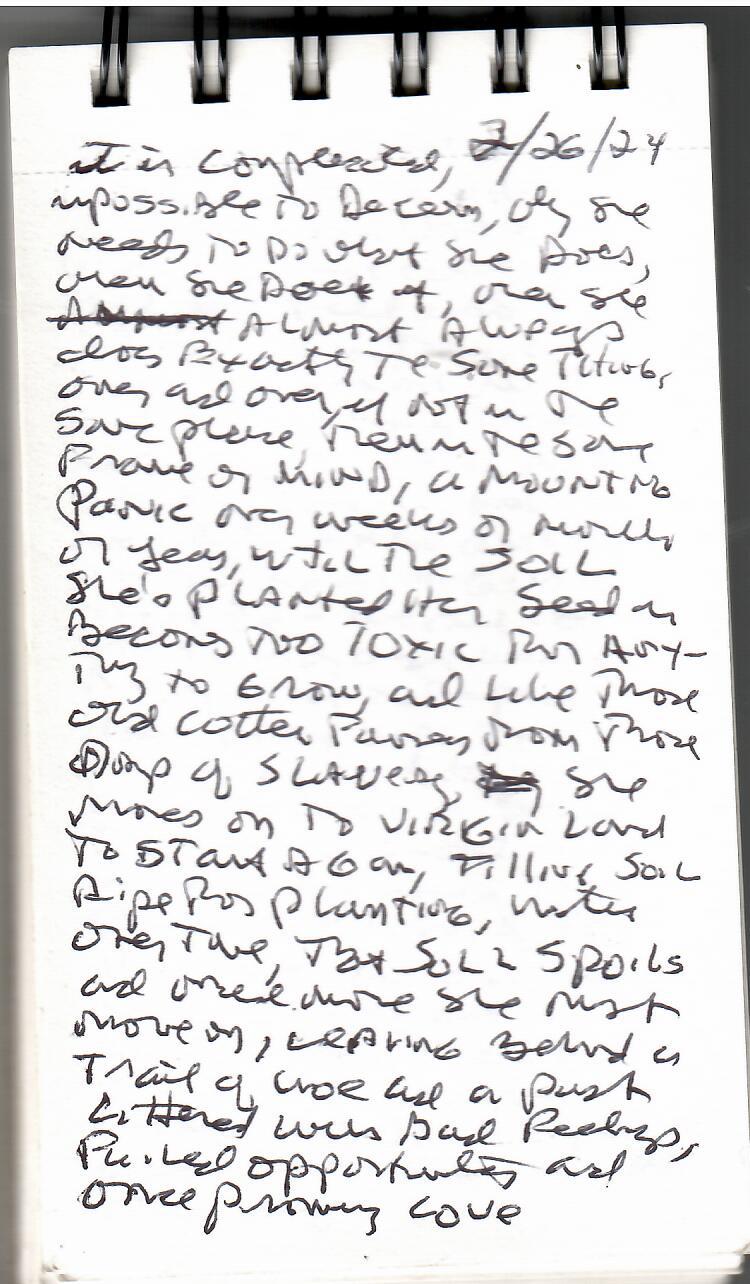 it is complicated, 7/26/24
impossible to discern, why she
needs to do what she does,
when she does it, when she
Almost Almost Always
does exactly the same thing,
over and over, if not in the
same place, then in the same
frame of mind, a mounting
panic over weeks or months
or years, until the soil
she's planted her seed in
becomes too toxic for any-
thing to grow, and like those
old cotton farmers from those
days of slavery, she
moves on to virgin land
to start again, tilling soil
ripe for planting, until
over time, that soil spoils
and once more she must
move on, leaving behind a
trail of woe and a past
littered with bad feelings,
failed opportunities and
once promising love